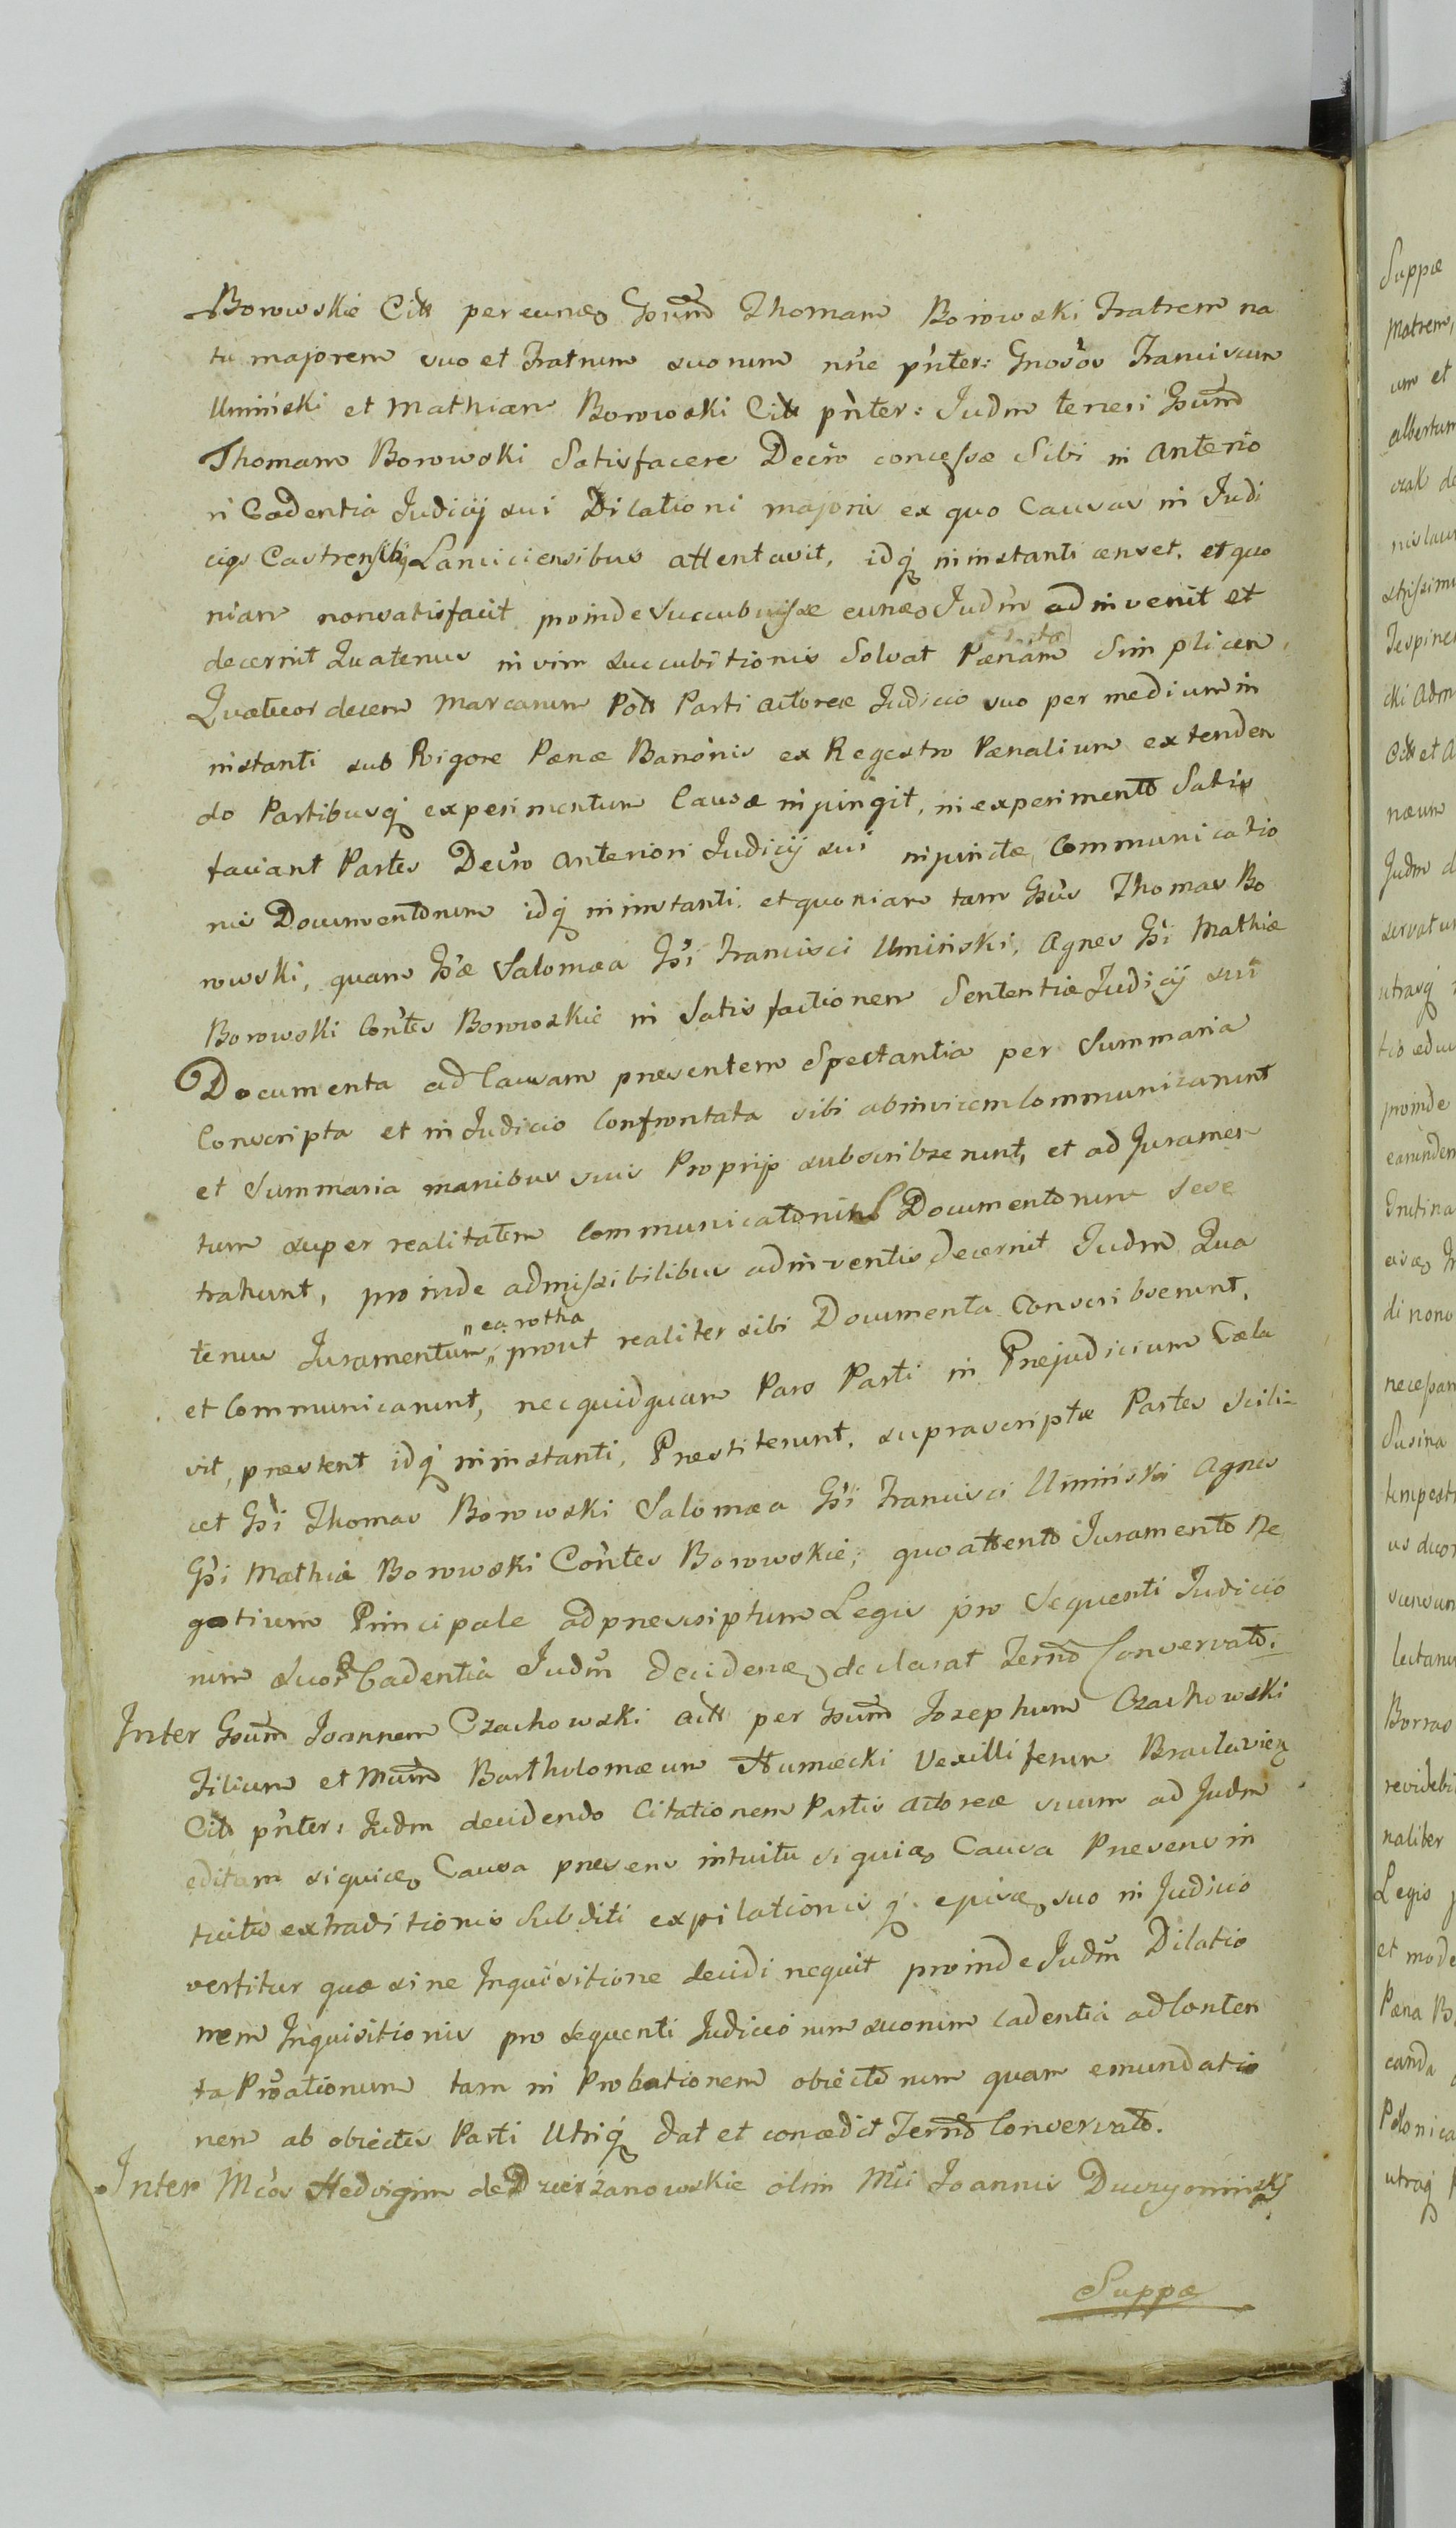 Borowskie Citt per eundē Gsum̃ Thomam Borowski Fratrem na
tu majorem suo et Fratrum suorum nñe pñter: Gnosõs Franciscum
Umiński et Mathiam Borowski Citt pñter: Judm teneri Gsum̃
Thomam Borowski Satisfacere Decro concessæ Sibi in anterio
ri Cadentia Judicij sui Dilationi majoris ex quo Causas in Judi
cijs Castrensibq Lanciciensibus attentavit, idq́ in instanti censet, et quo
niam non satisfacit proinde succubuisse eundē Judm̃ adinvenit et
decernit Quatenus in vim succubitionis Solvat Pænam Simplicem
Quatuordecem Marcarum Poll Parti actoreæ Judicio suo per medium in
instanti sub Rigore Pænæ Banõnis ex Regestro Pænalium extenden
do Partibusq́ experimentum Causæ injungit, in experimento Satis
faciant Partes Decro anteriori Judicij sui injunctæ Communicatio
nis Documentorum idq́ in instanti. et quoniam tam Gsus Thomas Bo
rowski, quam Gsæ Salomæa Gsi Francisci Umiński, Agnes Gsi Mathiæ
Borowski Contes Borowskie in Satisfactionem Sententiæ Judicij sui
Documenta ad Causam præsentem Spectantia per Summaria
Conscripta et in Judicio Confrontata sibi abinvicem Communicarunt
et Summaria manibus suis Proprijs subscribserunt, et ad Juramen
tum super realitatem Communicatorum Documentorum sese
trahunt, proinde admissibilibus adinventis decernit Judm̃ Qua
tenus Juramentum „ea rotha„ prout realiter sibi Documenta Conscribserunt,
et Communicarunt, nec quidquam Pars Parti in Præjudicium Cæla
vit, præstent idq́ in instanti, Præstiterunt, suprascriptæ Partes scili
cet Gsi Thomas Borowski Salomæa Gsi Francisci Umiński Agnes
Gsi Mathiæ Borowski Contes Borowskie; quo attento Juramento Ne
gotium Principale ad præscriptum Legis pro Sequenti Judicio
rum suor̃ Cadentia Judm̃ decidendū declarat Termo Conservato.
Inter Gsum̃ Joannem Czachowski actt per Gsum̃ Josephum Czachowski
Filium et Mum̃ Bartholomæum Humæcki Vexilliferum Braclavien
Citt pñter: Judm decidendo Citationem Partis actoreæ suum ad Judm
editam siquidē Causa præsens intuitu siquidē Causa Præsens in
tuitu extraditionis Subditi expilationis q́. ejusdē suo in Judicio
vertitur quæ sine Inquisitione decidi nequit proinde Judm̃ Dilatio
nem Inquisitionis pro sequenti Judiciorum suorum cadentia ad Conten
ta Prõationum tam in Probationem obiectorum quam emundatio
nem ab obiectis Parti Utriq́ dat et concedit Termo Conservato.
Inter Mcos Hedvigim de Dzierżanowskie olim Mci Joannis Duczymiński
Suppæ